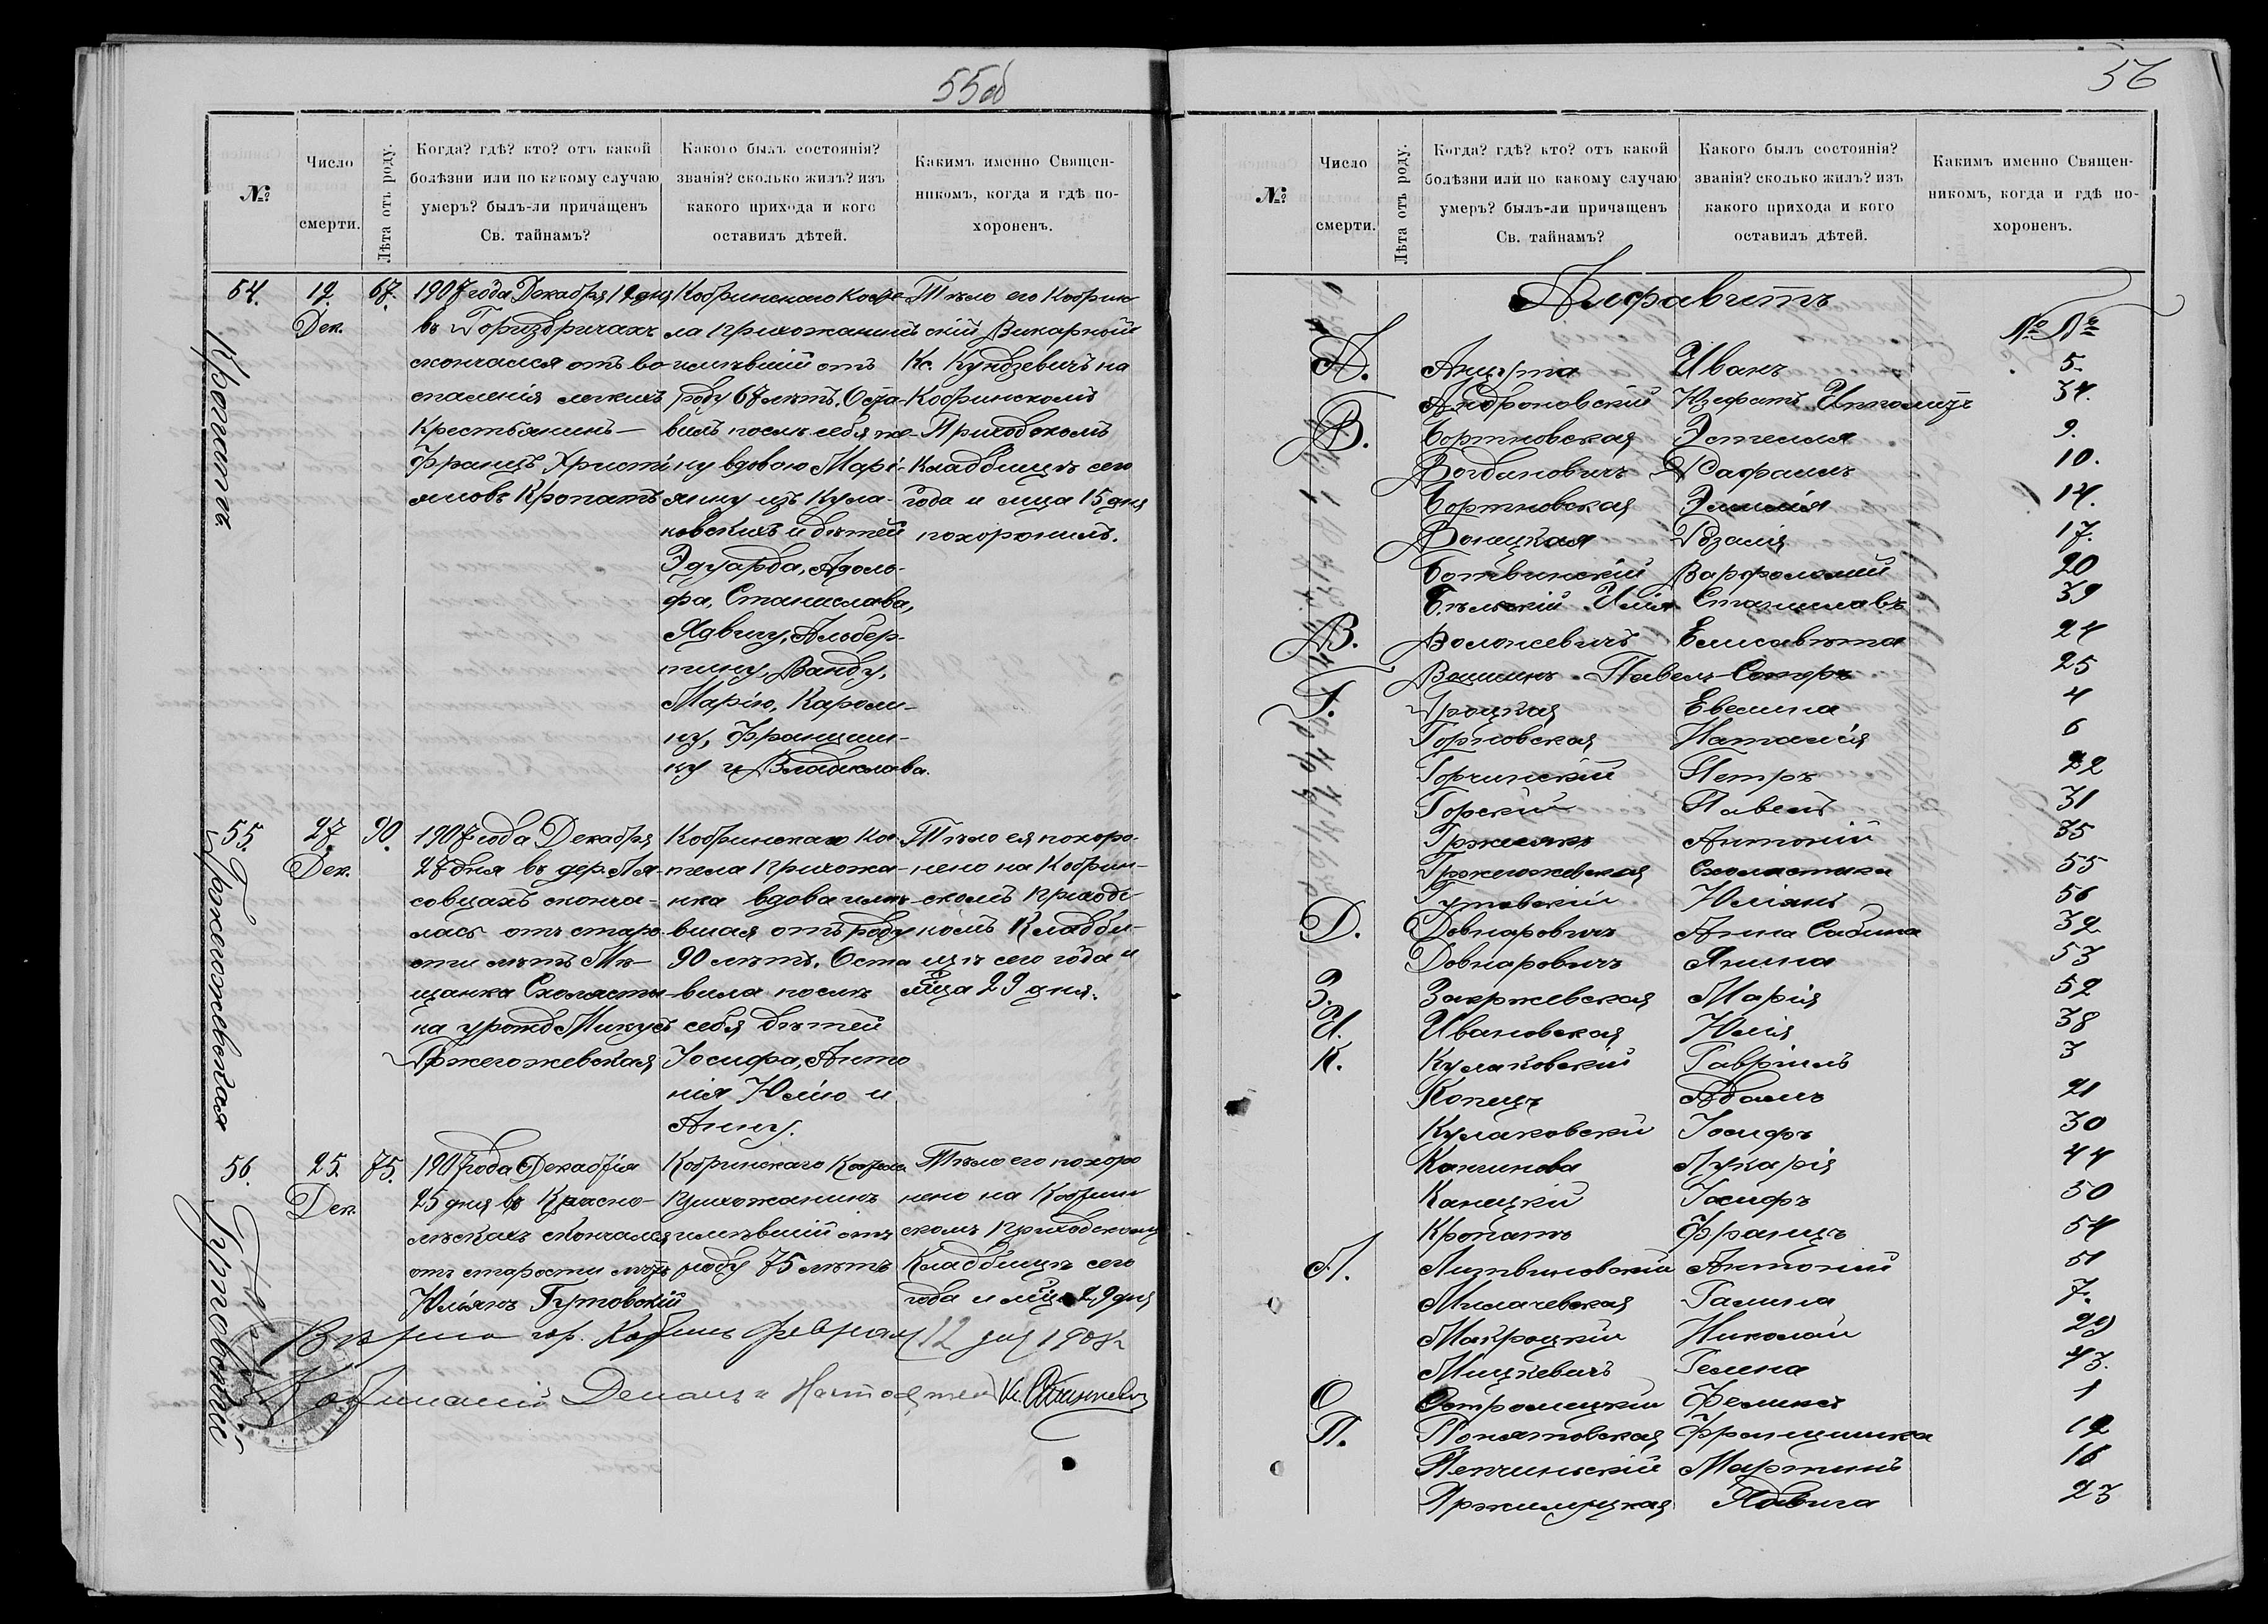 55об
№
Число
смерти.
Лѣта отъ роду.
Когда? гдѣ? кто? отъ какой
болѣзни или по какому случаю
умеръ? былъ-ли причащенъ
Св. тайнамъ?
Какого былъ состоянія?
званія? сколько жилъ? изъ
какого прихода и кого
оставилъ дѣтей.
Какимъ именно Священ-
никомъ, когда и гдѣ по-
хороненъ.
54.
Кропатъ
12.
Дек.
67.
1907 года Декабря 12 дня
въ Гориздричахъ
скончался отъ во
спаленія легкихъ
Крестьянинъ —
Францъ Христі
яновъ Кропатъ
Кобринскаго Косте-
ла прихожанинъ
имѣвшій отъ
роду 67 лѣтъ. Оста-
вилъ послѣ себя же-
ну вдовою Марі-
янну изъ Кула-
ковскихъ и дѣтей
Эдуарда, Адоль-
фа, Станислава,
Ядвигу, Альбер-
тину, Ванду,
Марію, Кароли-
ну, Францишк-
ку и Владислава.
Тѣло его Кобрин
скій Викарный
Кс. Кундзевичъ на
Кобринскомъ
Приходскомъ
Кладбищѣ сего
года и мѣца 15 дня
похоронилъ.
55.
Гржегожевская
27.
Дек.
90.
1907 года Декабря
27 дня въ дер. Ля-
совцахъ сконча-
лась отъ старо
сти лѣтъ Мѣ-
щанка Схоласти-
ка урожд. Микусъ
Гржегожевская
Кобринскаго Кос
тела прихожа-
нка вдова имѣ-
вшая отъ роду
90 лѣтъ. Оста
вила послѣ
себя дѣтей
Іосифа, Анто
нія Юлію и
Анну.
Тѣло ея похоро-
нено на Кобрин-
скомъ Приходс-
комъ Кладби-
щѣ сего года и
мѣца 29 дня.
56.
Гутовскій
25.
Дек.
75.
1907 года Декабря
25 дня въ Красно-
лѣскахъ скончался
отъ старости лѣтъ
Юліянъ Гутовскій
Кобринскаго Костела
прихожанинъ
имѣвшій отъ
роду 75 лѣтъ
Тѣло его похоро
нено на Кобрин
скомъ Приходскомъ
Кладбищѣ сего
года и мѣца 29 дня
Вѣрно гор. Кобринъ Февраля 12 дня 1908 г.
Кобринскій Деканъ и Настоятель
56
№
Число
смерти.
Лѣта отъ роду.
Когда? гдѣ? кто? отъ какой
болѣзни или по какому случаю
умеръ? былъ-ли причащенъ
Св. тайнамъ?
Какого былъ состоянія?
званія? сколько жилъ? изъ
какого прихода и кого
оставилъ дѣтей.
Какимъ именно Священ-
никомъ, когда и гдѣ по-
хороненъ.
Алфавитъ
№ №
А. Анцута Иванъ 5.
Андроновскій Юзефатъ Ипполитъ 34.
Б. Бортновская Эстелля 9.
Богдановичъ Рафаилъ 10.
Бортновская Эмилія 14.
Розалія 17.
Ботвинскій Варфоломій 20
Бѣльскій Илія Станиславъ 39
В. Воложевичъ Елисавѣта 24
Павелъ 25
Г. Гроцкая Евелина 4
Горновская Наталія 6
Горчинскій Петръ 22
Горскій Павелъ 31
Антоній 35
Гржегожевская Схоластика 55
Гутовскій Юліянъ 56
Д. Довнаровичъ Анна Сабина 32
Довнаровичъ Янина 53
З. Закржевская Марія 52
И. Ивановская Юлія 38
К. Кулаковскій Гавріилъ 3
Копецъ Адамъ 21
Кулаковскій Іосифъ 30
Лукарія 44
Канецкій Іосифъ 50
Кропатъ Францъ 54
Л. Литвиновскій Антоній 51
Милачевская Галина 7.
Макроцкій Николай 29
Мицкевичъ Гелена 43.
О Остромецкій Феликсъ 1
П. Понятовская Францишка 12
Пекчиньскій Мартинъ 16
Ядвига 23